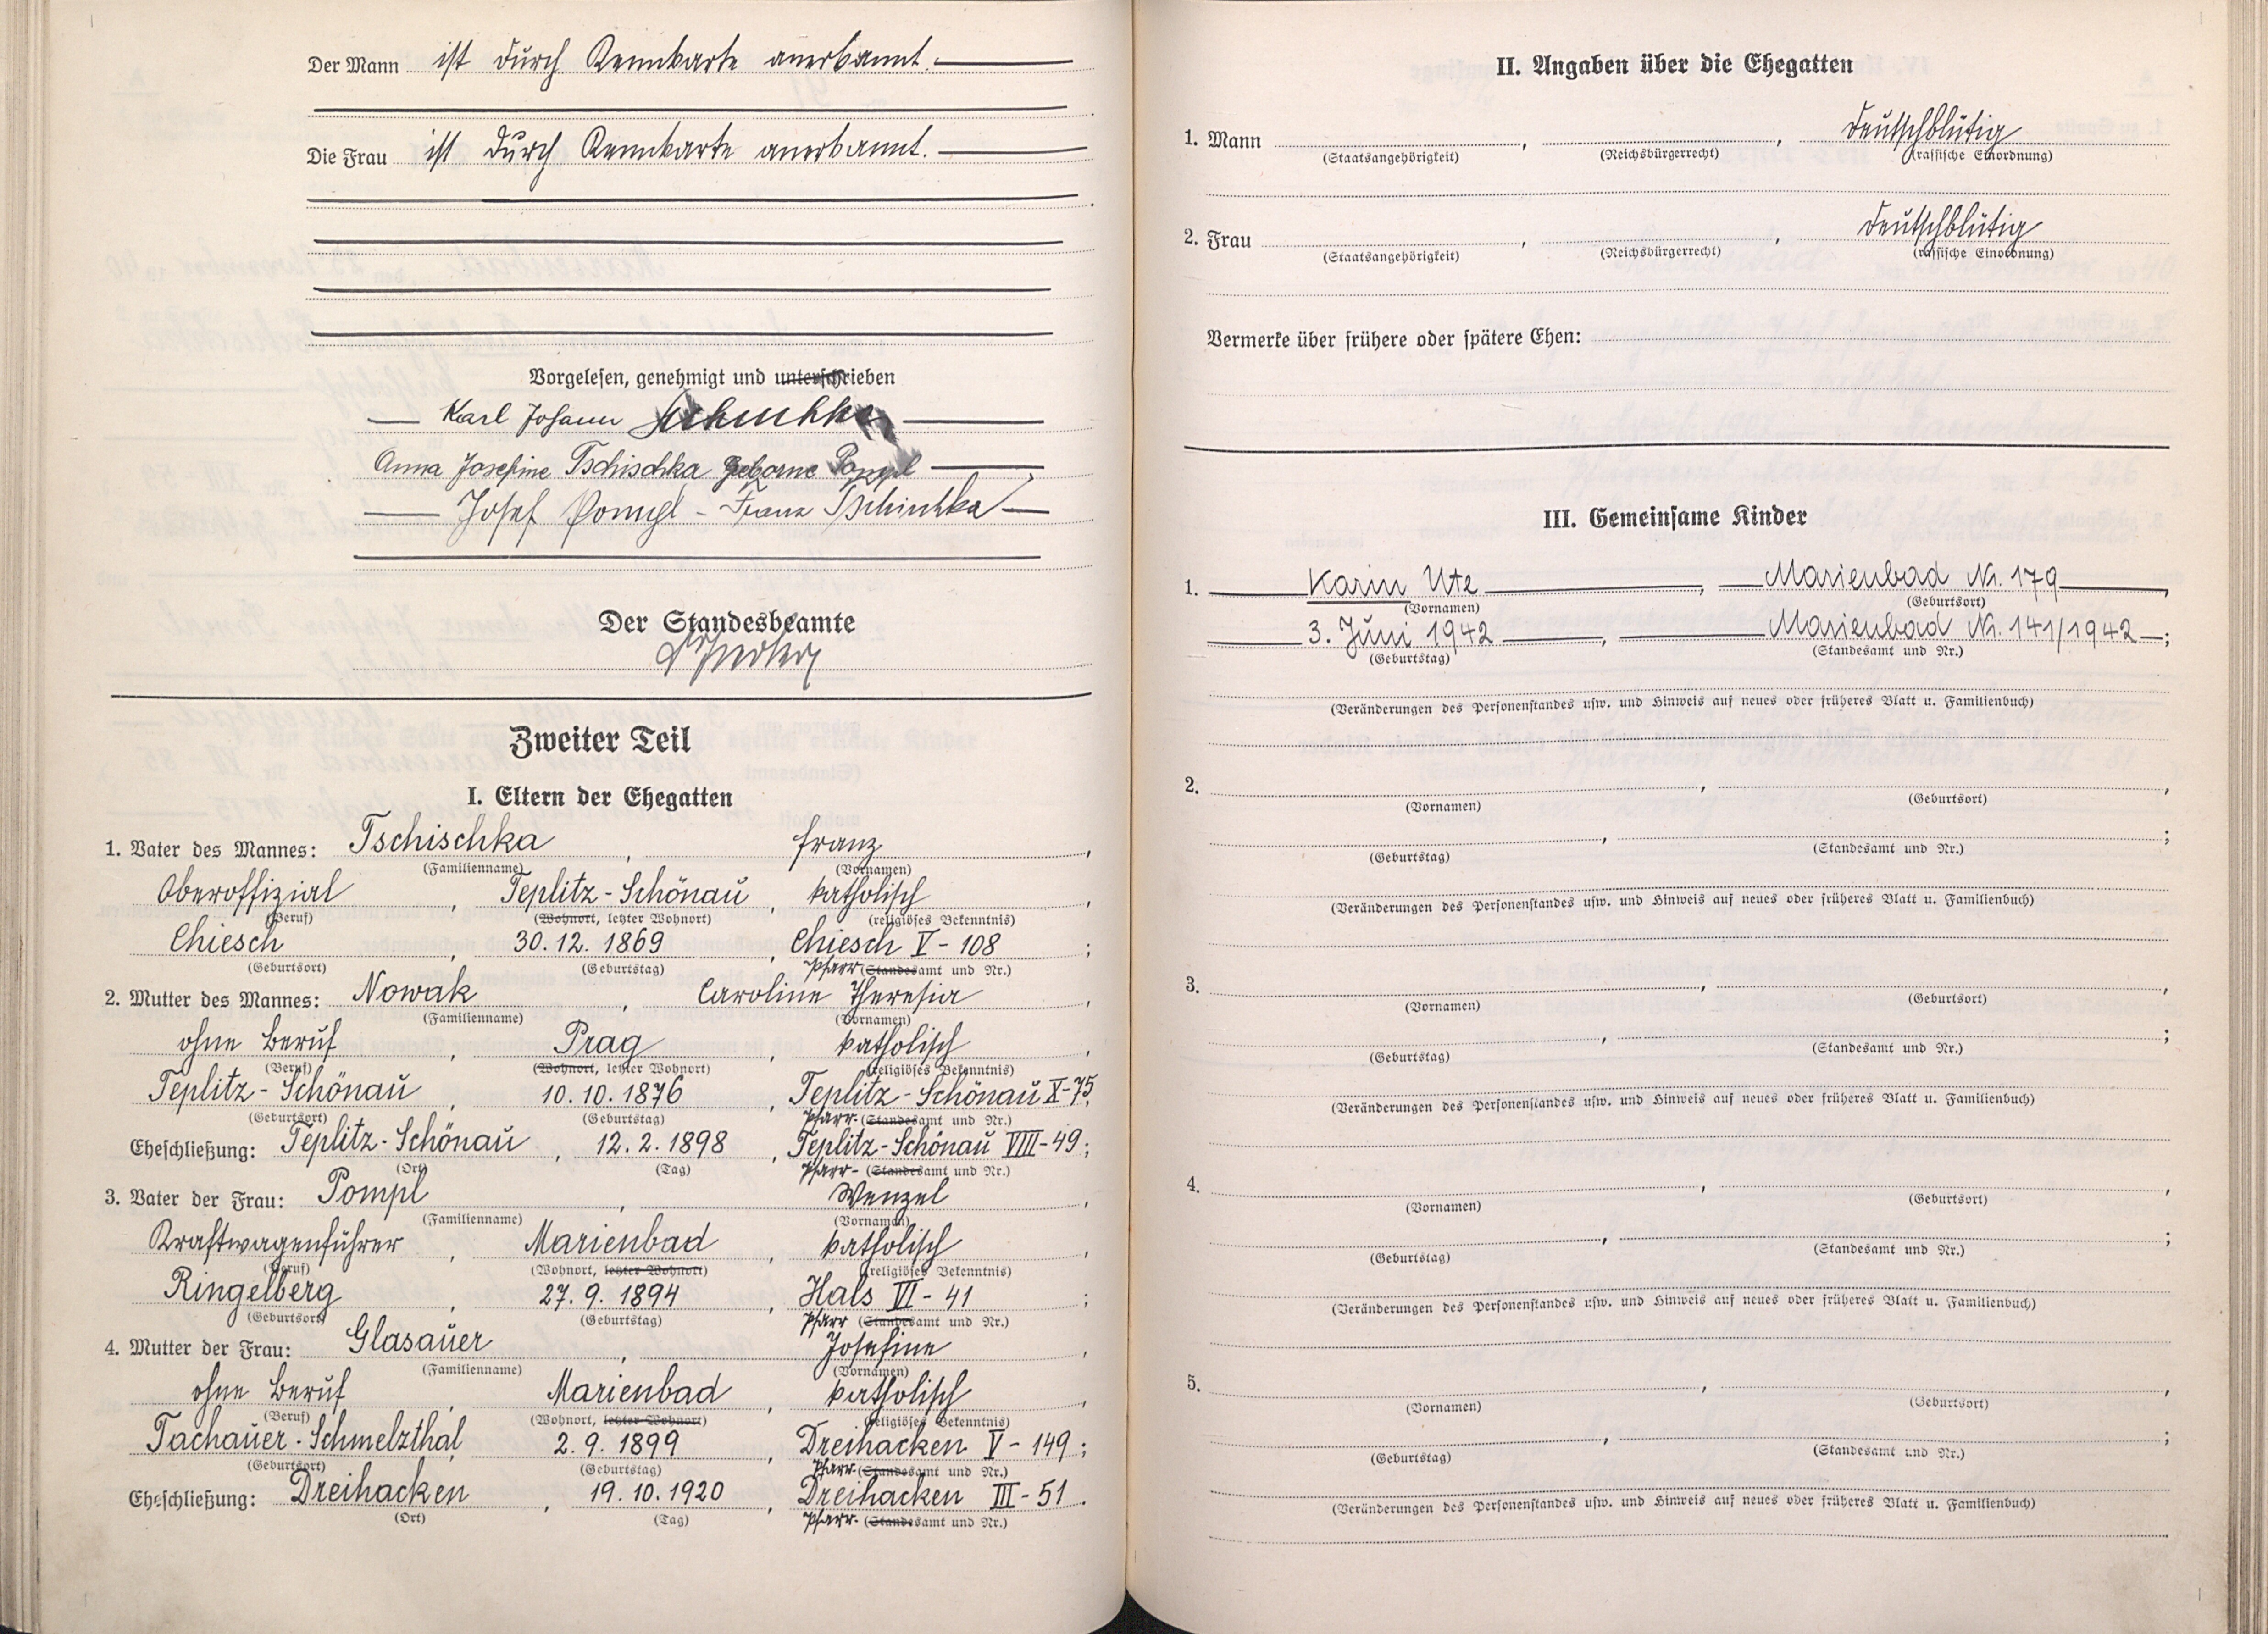 Der Mann ist durch Kennkarte anerkannt.
Die Frau ist durch Kennkarte anerkannt.
Vorgelesen, genehmigt und unterschrieben
Karl Johann
Anna Josefine Tschischka geborne Pompl
Josef Pompl - Franz Tschischka
Der Standesbeamte
Zweiter Teil
I. Eltern der Ehegatten
1. Vater des Mannes: Tschischka, Franz,
(Familienname) (Vornamen)
Oberoffizial, Teplitz-Schönau, katholisch,
(Beruf) (Wohnort, letzter Wohnort) (religiöses Bekenntnis)
Chiesch, 30.12.1869, Chiesch V - 108;
(Geburtsort) (Geburtstag) Pfarr (Standesamt und Nr.)
2. Mutter des Mannes: Nowak, Caroline Theresia,
(Familienname) (Vornamen)
ohne Beruf, Prag, katholisch,
(Beruf) (Wohnort, letzter Wohnort) (religiöses Bekenntnis)
Teplitz-Schönau, 10.10.1876, Teplitz-Schönau X-75,
(Geburtsort) (Geburtstag) Pfarr- (Standesamt und Nr.)
Eheschließung: Teplitz-Schönau, 12.2.1898, Teplitz-Schönau VIII-49;
(Ort) (Tag) Pfarr- (Standesamt und Nr.)
3. Vater der Frau: Pompl, Wenzel,
(Familienname) (Vornamen)
Kraftwagenführer, Marienbad, katholisch,
(Beruf) (Wohnort, letzter Wohnort) (religiöses Bekenntnis)
Ringelberg, 27.9.1894, Hals VI - 41;
(Geburtsort) (Geburtstag) Pfarr (Standesamt und Nr.)
4. Mutter der Frau: Glasauer, Josefine,
(Familienname) (Vornamen)
ohne Beruf, Marienbad, katholisch,
(Beruf) (Wohnort, letzter Wohnort) (religiöses Bekenntnis)
Tachauer-Schmelzthal, 2.9.1899, Dreihacken V - 149;
(Geburtsort) (Geburtstag) Pfarr- (Standesamt und Nr.)
Eheschließung: Dreihacken, 19.10.1920, Dreihacken III - 51.
(Ort) (Tag) Pfarr- (Standesamt und Nr.)
II. Angaben über die Ehegatten
1. Mann , , deutschblütig
(Staatsangehörigkeit) (Reichsbürgerrecht) (rassische Einordnung)
2. Frau , , deutschblütig
(Staatsangehörigkeit) (Reichsbürgerrecht) (rassische Einordnung)
Vermerke über frühere oder spätere Ehen:
III. Gemeinsame Kinder
1. Karin Ute, Marienbad Nr. 179,
(Vornamen) (Geburtsort)
3. Juni 1942, Marienbad Nr. 141/1942;
(Geburtstag) (Standesamt und Nr.)
(Veränderungen des Personenstandes usw. und Hinweis auf neues oder früheres Blatt u. Familienbuch)
2. , ,
(Vornamen) (Geburtsort)
, ;
(Geburtstag) (Standesamt und Nr.)
(Veränderungen des Personenstandes usw. und Hinweis auf neues oder früheres Blatt u. Familienbuch)
3. , ,
(Vornamen) (Geburtsort)
, ;
(Geburtstag) (Standesamt und Nr.)
(Veränderungen des Personenstandes usw. und Hinweis auf neues oder früheres Blatt u. Familienbuch)
4. , ,
(Vornamen) (Geburtsort)
, ;
(Geburtstag) (Standesamt und Nr.)
(Veränderungen des Personenstandes usw. und Hinweis auf neues oder früheres Blatt u. Familienbuch)
5. , ,
(Vornamen) (Geburtsort)
, ;
(Geburtstag) (Standesamt und Nr.)
(Veränderungen des Personenstandes usw. und Hinweis auf neues oder früheres Blatt u. Familienbuch)